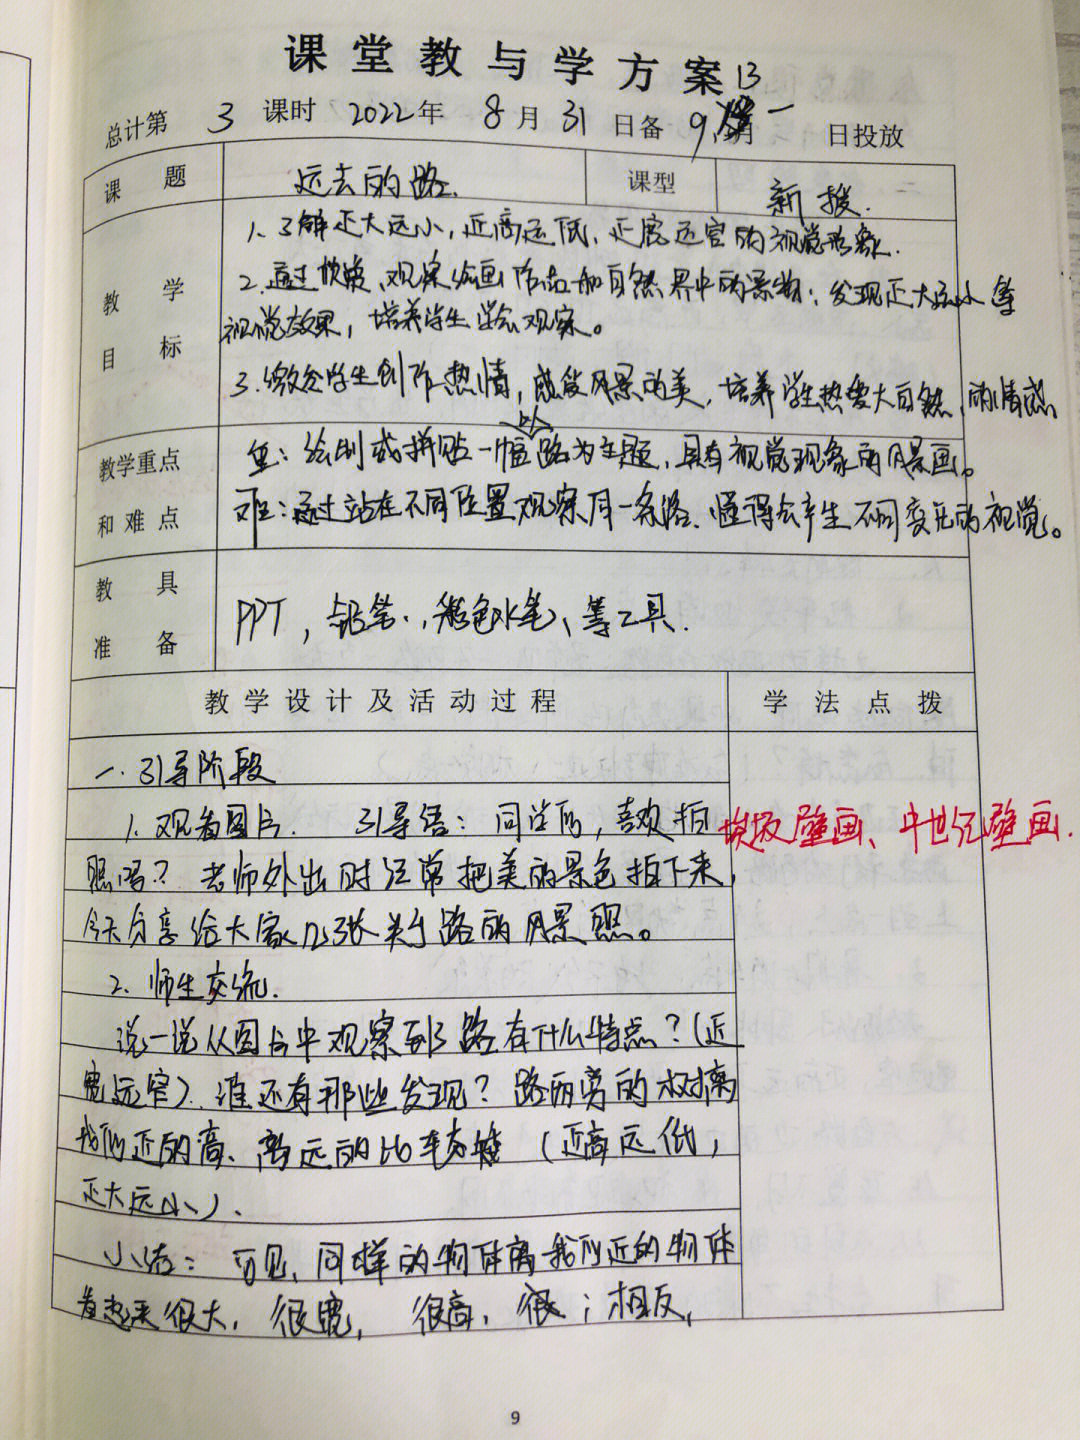 课堂教与学方案 13
总计第 3 课时 2022年 8月31日备 9月 一 日投放
课题 远去的路. 课型 新授.
教学目标
1、了解近大远小,近高远低、近宽远窄的视觉形象.
2.通过欣赏、观察绘画作品和自然界中的景物;发现近大远小等
视觉效果,培养学生学会观察。
3.激发学生创作热情,感受风景的美,培养学生热爱大自然的情感
教学重点和难点
重:绘制或拼贴一幅以路为主题,具有视觉现象的风景画。
难:通过站在不同位置观察同一条路、懂得会产生不同变化的视觉。
教具准备
PPT,铅笔、彩色水笔、等工具.
教学设计及活动过程 学法点拨
一.引导阶段
1.观看图片. 引导语:同学们,喜欢拍 埃及壁画、中世纪壁画.
照吗?老师外出时经常把美的景色拍下来,
今天分享给大家几张关于路的风景照。
2.师生交流.
说一说从图片中观察到了路有什么特点?(近
宽远窄).谁还有那些发现?路两旁的树离
我们近的高、离远的比较矮(近高远低,
近大远小).
小结:可见,同样的物体离我们近的物体
看起来很大,很宽,很高,很;相反,
9